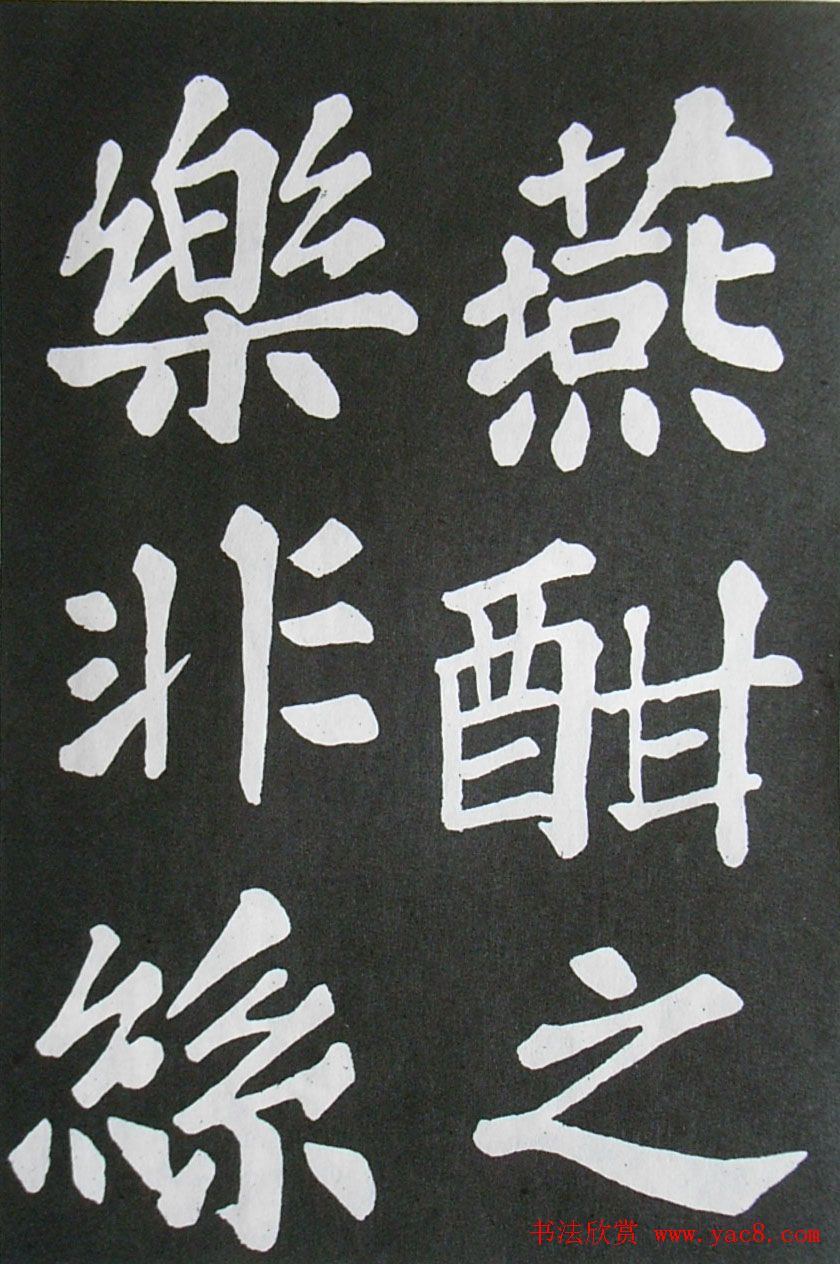 燕酣之
樂非絲
书法欣赏 www.yac8.com